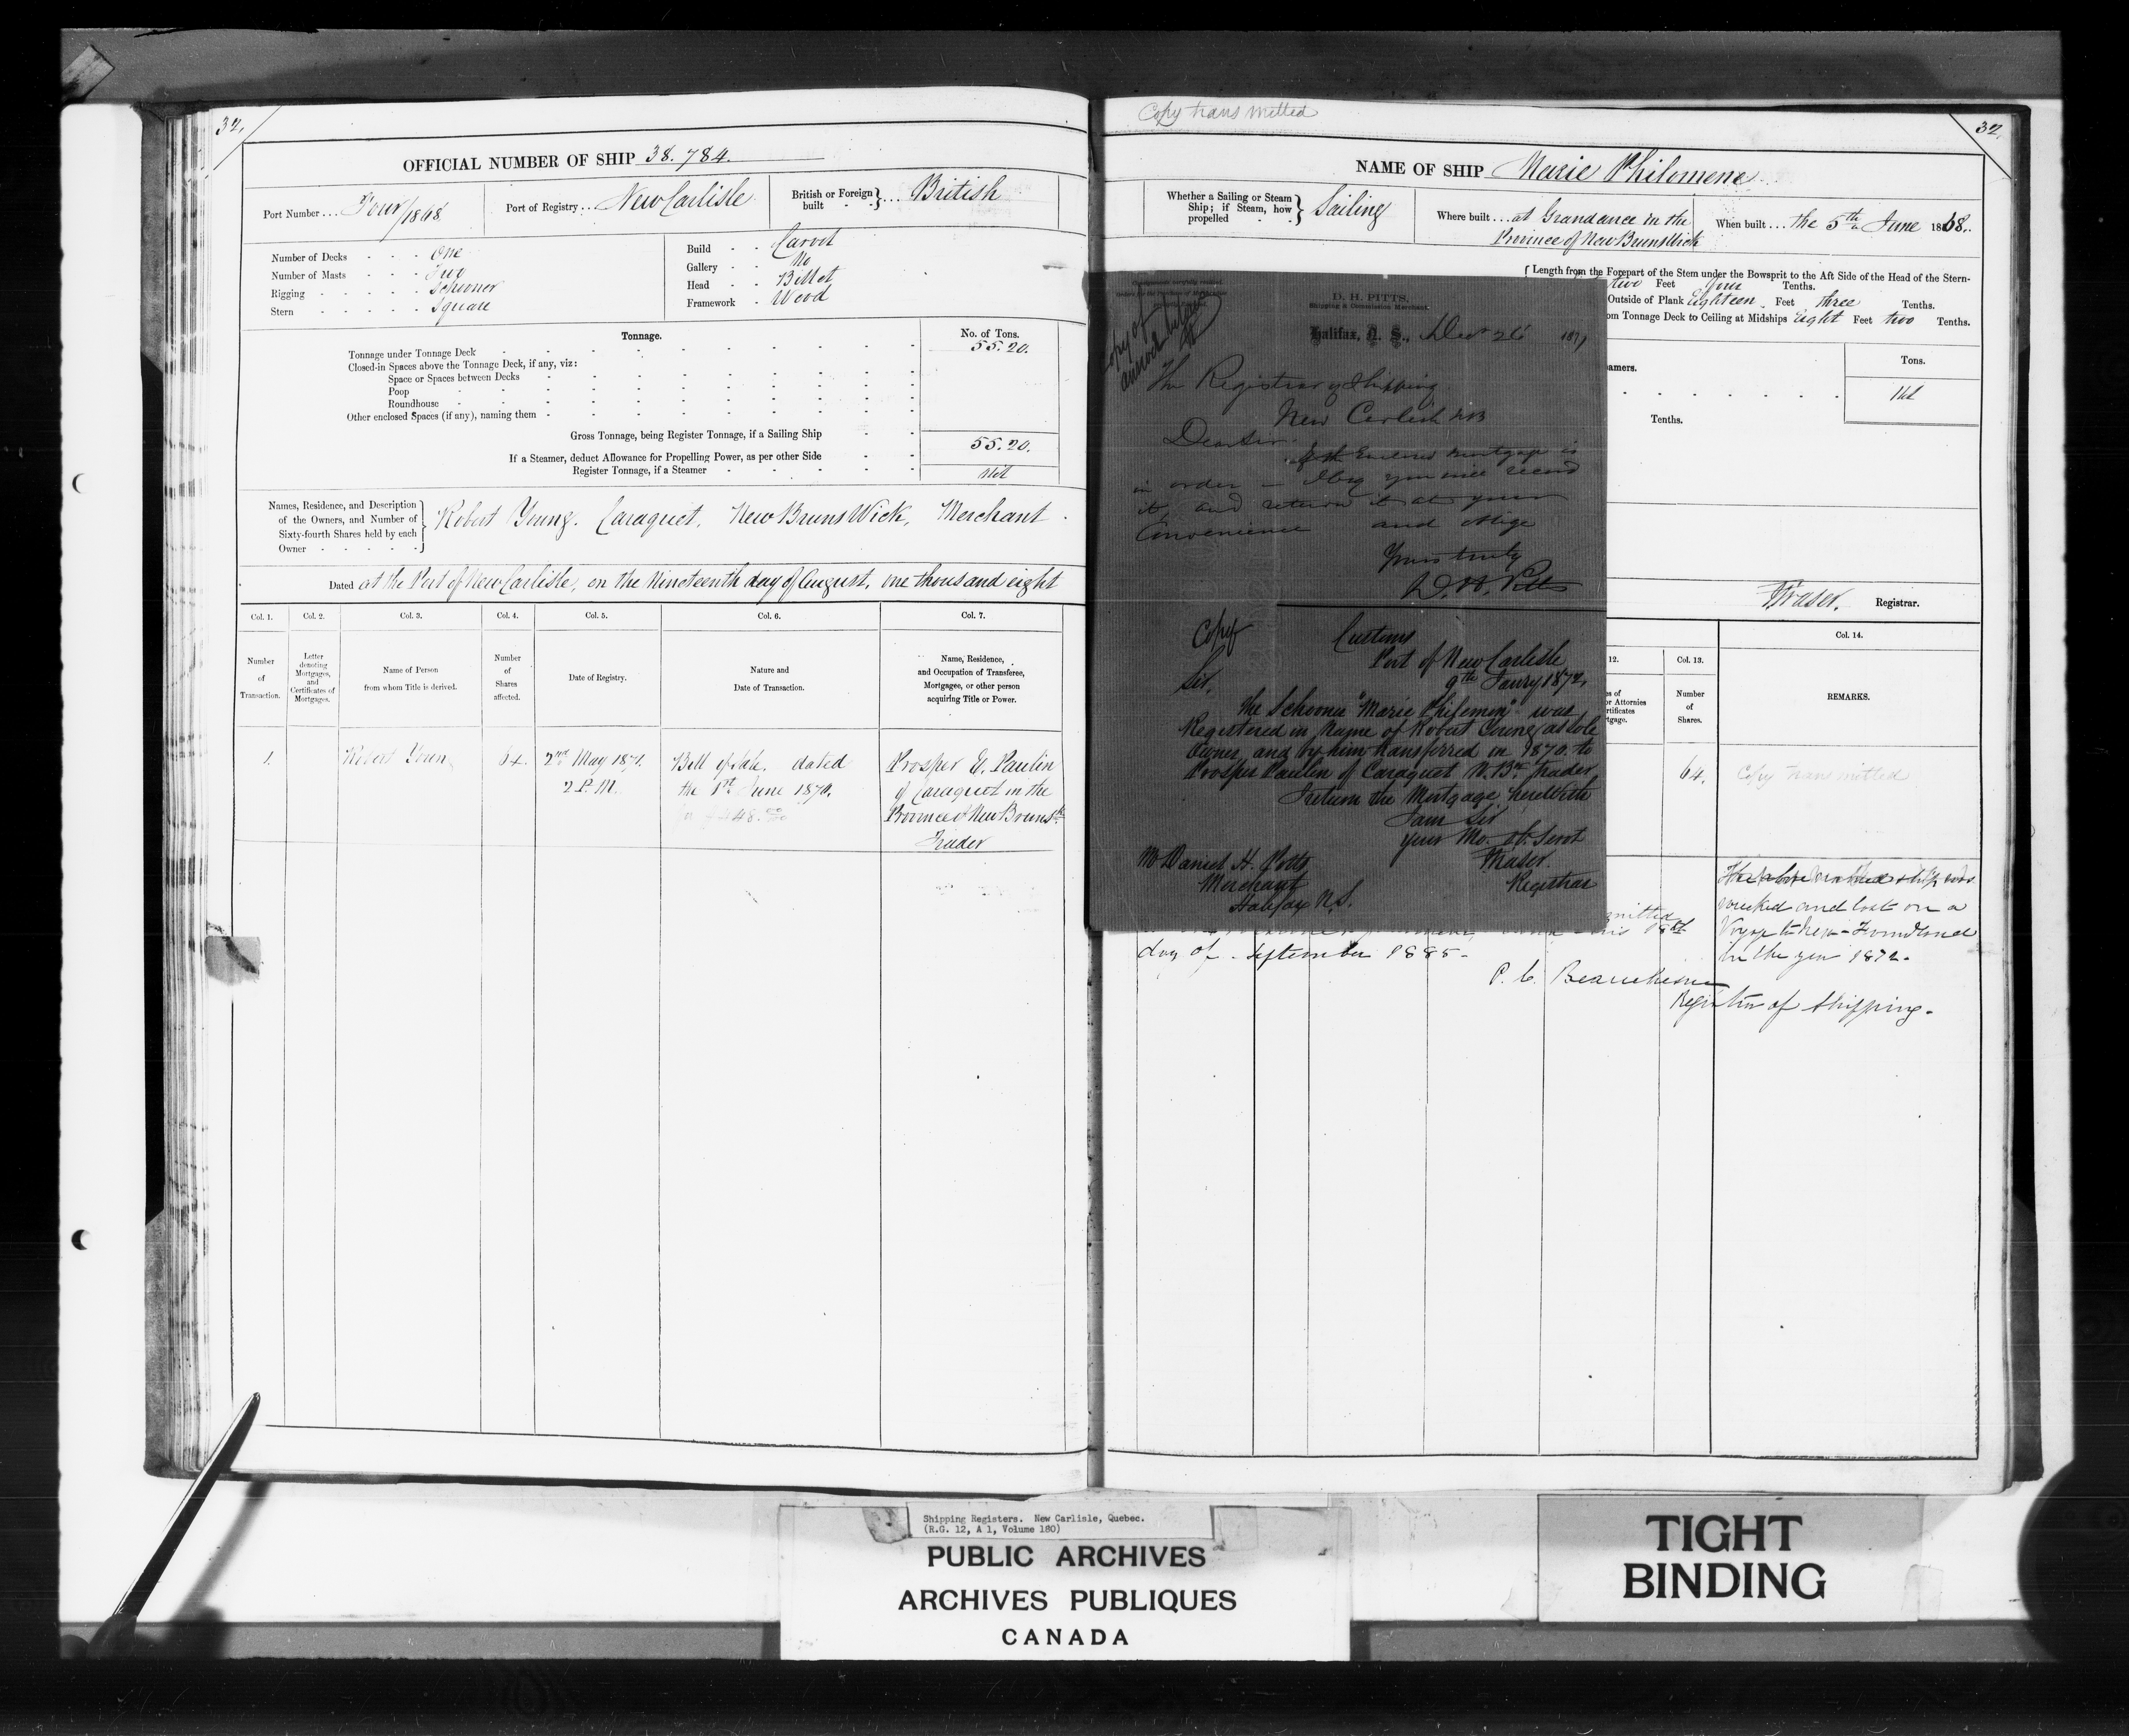 32.
OFFICIAL NUMBER OF SHIP 38.784.
Port Number ... Four/1868
Port of Registry ... New Carlisle
British or Foreign built } ... British
Number of Decks - - - One
Number of Masts - - - Two
Rigging - - - - schooner
Stern - - - - - square
Build - - Carvel
Gallery - - No
Head - - Billet
Framework - Wood
Tonnage.
No. of Tons.
Tonnage under Tonnage Deck 55.20.
Closed-in Spaces above the Tonnage Deck, if any, viz:
Space or Spaces between Decks
Poop
Roundhouse
Other enclosed Spaces (if any), naming them
Gross Tonnage, being Register Tonnage, if a Sailing Ship 55.20.
If a Steamer, deduct Allowance for Propelling Power, as per other Side
Register Tonnage, if a Steamer Nil
Names, Residence, and Description
of the Owners, and Number of
Sixty-fourth Shares held by each
Owner
Robert Young. Caraquet, New BrunsWick, Merchant.
Dated at the Port of New Carlisle, on the Nineteenth day of August, one thousand eight
Col. 1. Col. 2. Col. 3. Col. 4. Col. 5. Col. 6. Col. 7.
Number of Transaction.
Letter denoting Mortgages, and Certificates of Mortgages.
Name of Person from whom Title is derived.
Number of Shares affected.
Date of Registry.
Nature and Date of Transaction.
Name, Residence, and Occupation of Transferee, Mortgagee, or other person acquiring Title or Power.
1. Robert Young 64. 2nd May 1871. Bill of Sale. dated Prosper E. Paulin
2 P.M. the 1st June 1870. of Caraquet in the
Province of New Brunsk
Trader
Copy transmitted
32.
NAME OF SHIP Marie Philomene
Whether a Sailing or Steam
Ship; if Steam, how
propelled } Sailing
Where built ... at Grandance in the
Province of New BrunsWick
When built ... the 5th June 1868.
Length from the Forepart of the Stem under the Bowsprit to the Aft Side of the Head of the Stern-
two Feet four Tenths.
Outside of Plank Eighteen Feet three Tenths.
om Tonnage Deck to Ceiling at Midships Eight Feet two Tenths.
amers.
Tons.
Nil
Tenths.
Fraser. Registrar.
12. Col. 13. Col. 14.
es of
or Attornies
rtificates
tgage.
Number
of
Shares.
REMARKS.
64. Copy transmitted
The above
wrecked and lost on a
Voyage to New-Foundland
in the year 1872.
mitted
this 18th
day of September 1885-
P. C. Beauchesne
Registrar of Shipping.
Copy of
D. H. PITTS,
Shipping & Commission Merchant.
Halifax, N. S., Decr 26 1871
The Registrar of Shipping
New Carlisle NB
Dear Sir.
If the Enclosed Mortgage is
in order - I beg you will record
it and return it at your
Convenience and oblige
Yours truly
D. H. Pitts
Copy
Customs
Port of New Carlisle
9th Janry 1872,
Sir,
The Schooner "Marie Philomene" was
Registered in Name of Robert Young, as Sole
Owner, and by him transferred in 1870. to
Prosper Paulin of Caraquet N.Bk Trader
I return the Mortgage herewith
I am Sir
your Mo. ob. Servt
Fraser.
Registrar
Mr Daniel H. Potts
Merchant
Halifax N.S.
Shipping Registers. New Carlisle, Quebec.
(R.G. 12, A 1, Volume 180)
PUBLIC ARCHIVES
ARCHIVES PUBLIQUES
CANADA
TIGHT
BINDING